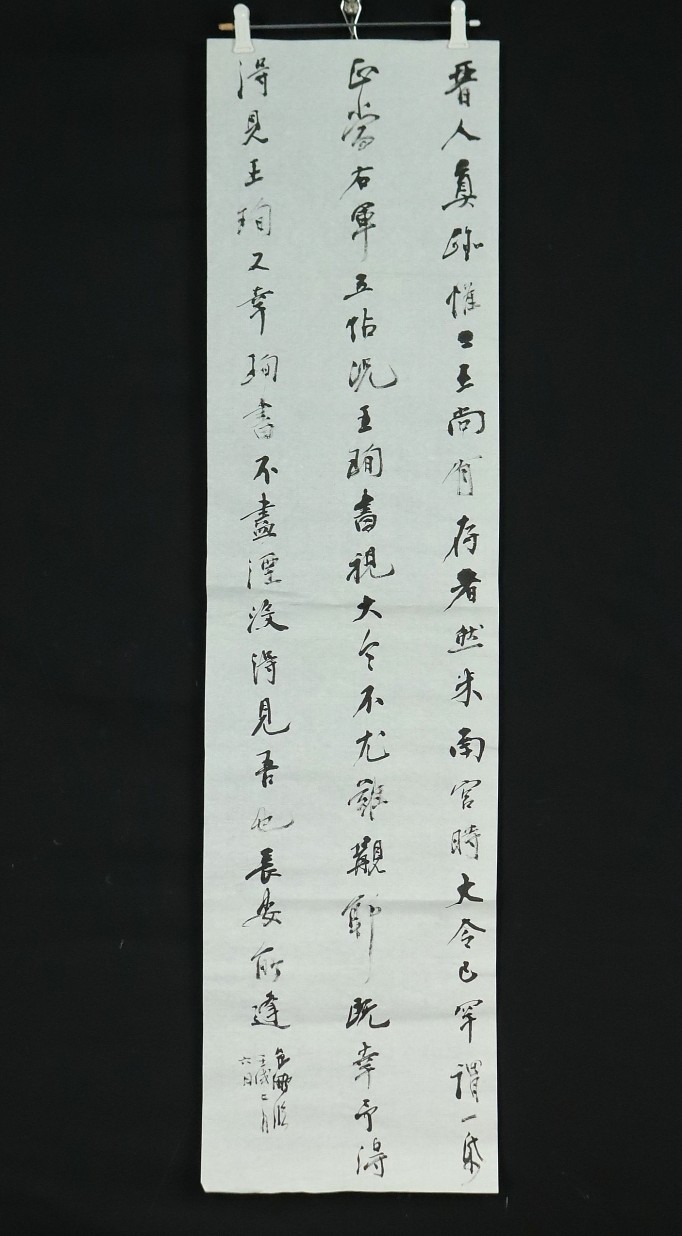 晉人真跡惟二王尚有存者然米南宮時大令已罕謂一紙
正當右軍五帖況王珣書視大令不尤難覯耶既幸予得
得見王珣又幸珣書不盡湮沒得見吾也長安所逢
臨
壬戌二月